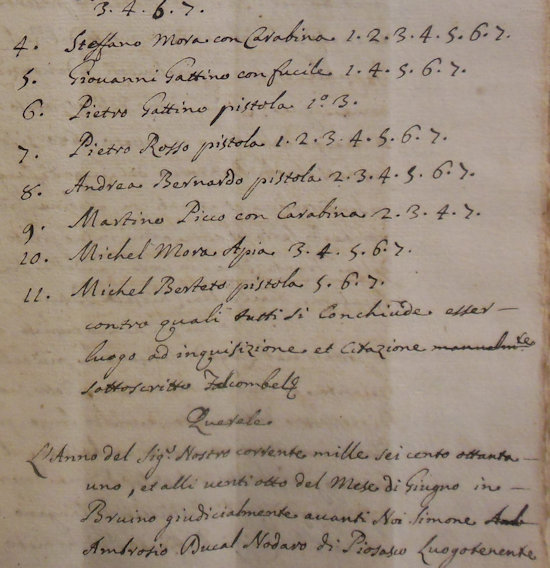 3. 4. 6. 7.
4. Steffano Mora con Carabina 1. 2. 3. 4. 5. 6. 7.
5. Giovanni Gattino con fucile 1. 4. 5. 6. 7.
6. Pietro Gattino pistola 1.º 3.
7. Pietro Rosso pistola 1. 2. 3. 4. 5. 6. 7.
8. Andrea Bernardo pistola 2. 3. 4. 5. 6. 7.
9. Martino Picco con Carabina 2. 3. 4. 7.
10. Michel Mora Apia 3. 4. 5. 6. 7.
11. Michel Berteto pistola 5. 6. 7.
contro quali tutti si Conchiude esser
luogo ad inquisizione et Citazione
sottoscritto
Querele
L'Anno del Sigʳ. Nostro corrente mille sei cento ottanta
uno, et alli venti otto del Mese di Giugno in
Bruino giudicialmente avanti Noi Simone
Ambrosio Ducal Nodaro di Piosasco Luogotenente